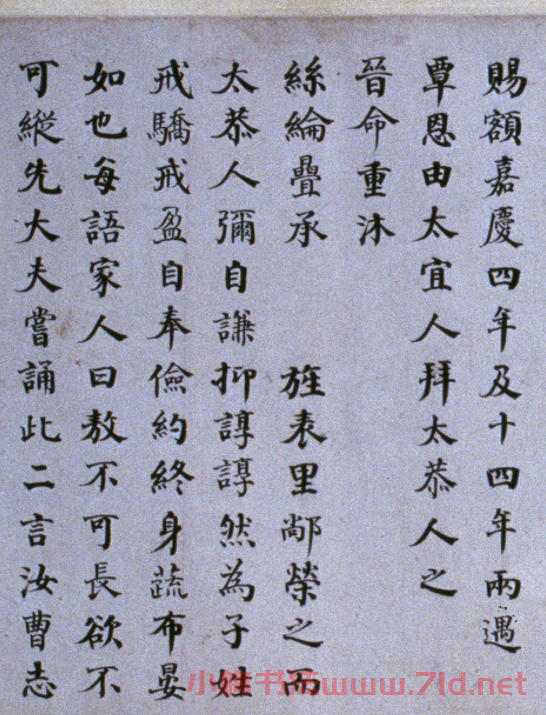 賜額嘉慶四年及十四年兩遇
覃恩由太宜人拜太恭人之
晉命重沐
絲綸疊承 旌表里鄰榮之而
太恭人彌自謙抑諄諄然為子姓
戒驕戒盈自奉儉約終身蔬布晏
如也每語家人曰敖不可長欲不
可縱先大夫嘗誦此二言汝曹志
www.7ld.net